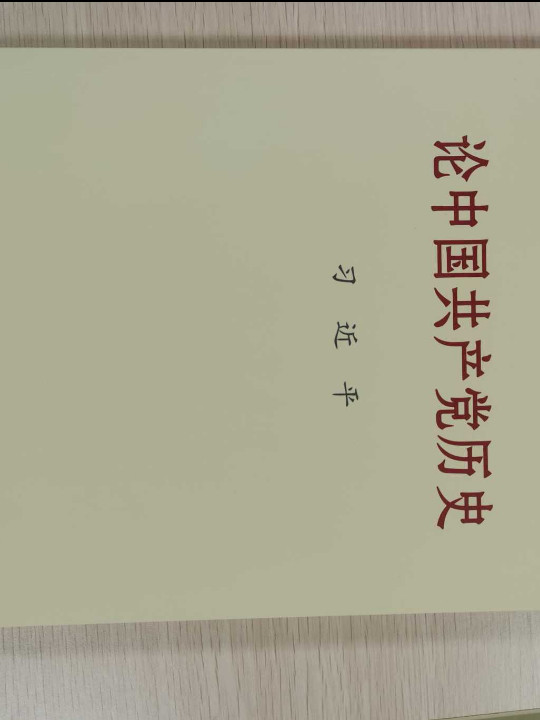 论中国共产党历史
习近平